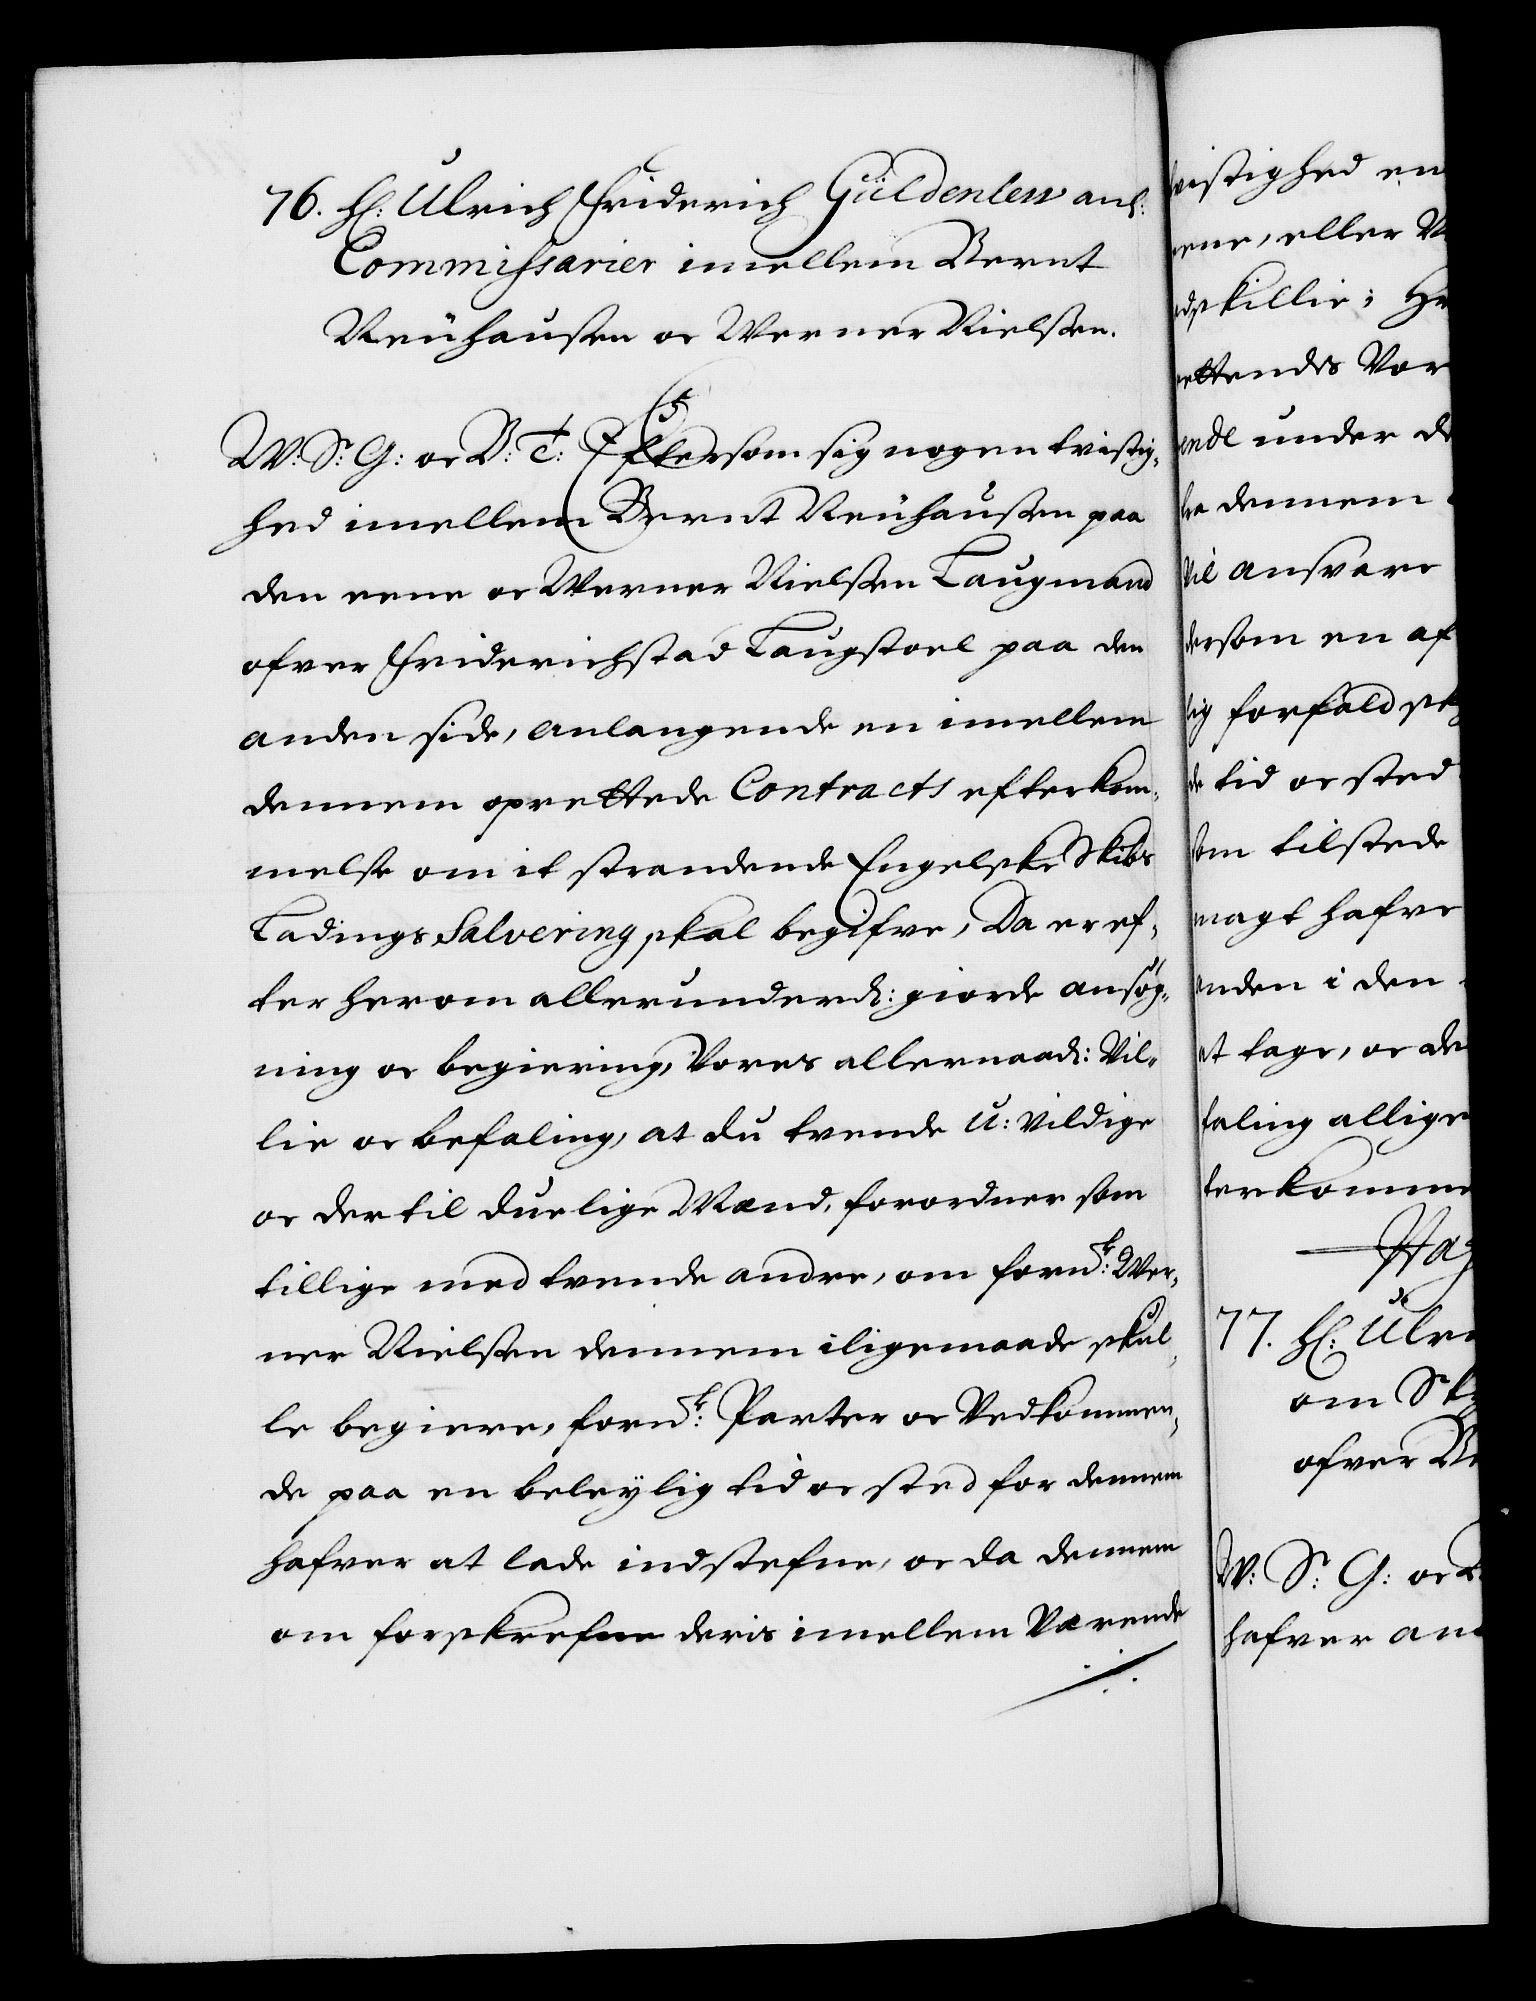 76. H: Ulrich Friderich Güldenlew anl:
Commissarier imellem Bernt
Neuhaussen oc Werner Nielssen.
W: S: G: oc B: T: Eftersom sig nogen tvistig-
hed imellem Bernt Neuhaussen paa
den eene oc Werner Nielssen Laugmand
ofver Friderichstad Laugstoel paa den
anden side, anlangende en imellem
dennem oprettede Contracts efterkom-
melse om it strandende Engelske Skibs
Ladings Salvering skal begifve, Da er ef-
ter herom allerunderd: giorde ansøg-
ning oc begiering, Vores allernaad: Vil-
lie oc befaling, at du tvende U: vildige
oc dertil duelige Mænd, forordner som
tillige med tvende andre, om fornd: Wer-
ner Nielssen dennem iligemaade skul-
le begiere, fornd: Parter oc Vedkommen-
de paa en beleylig tid oc sted for dennem
hafver at lade indstefne, oc da dennem
om forskrefne deris imellem Værende
vistighed en
eene, eller
adskillie;
rettendis Vor
ende under
dennem
vil ansvare
dersom en af
lig forfald
de tid oc sted
som tilstede
magt hafve
anden i den
at tage, oc
faling allige
terkomme
77. H: Ulri
om
ofver
W: S: G: oc
hafver